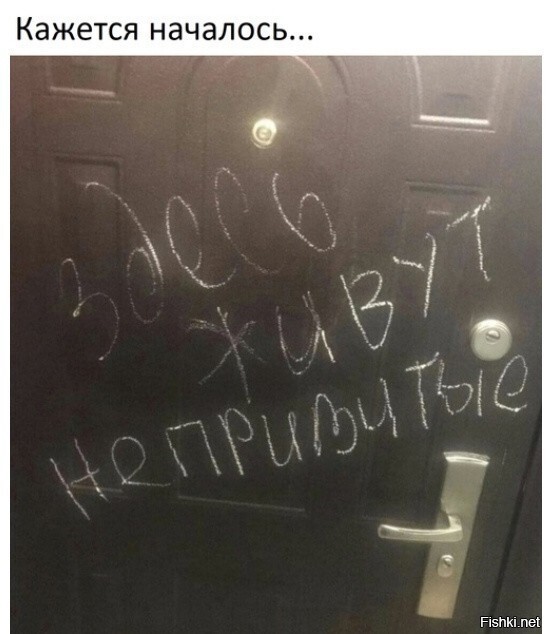 Кажется началось...
здесь
живут
непривитые
Fishki.net